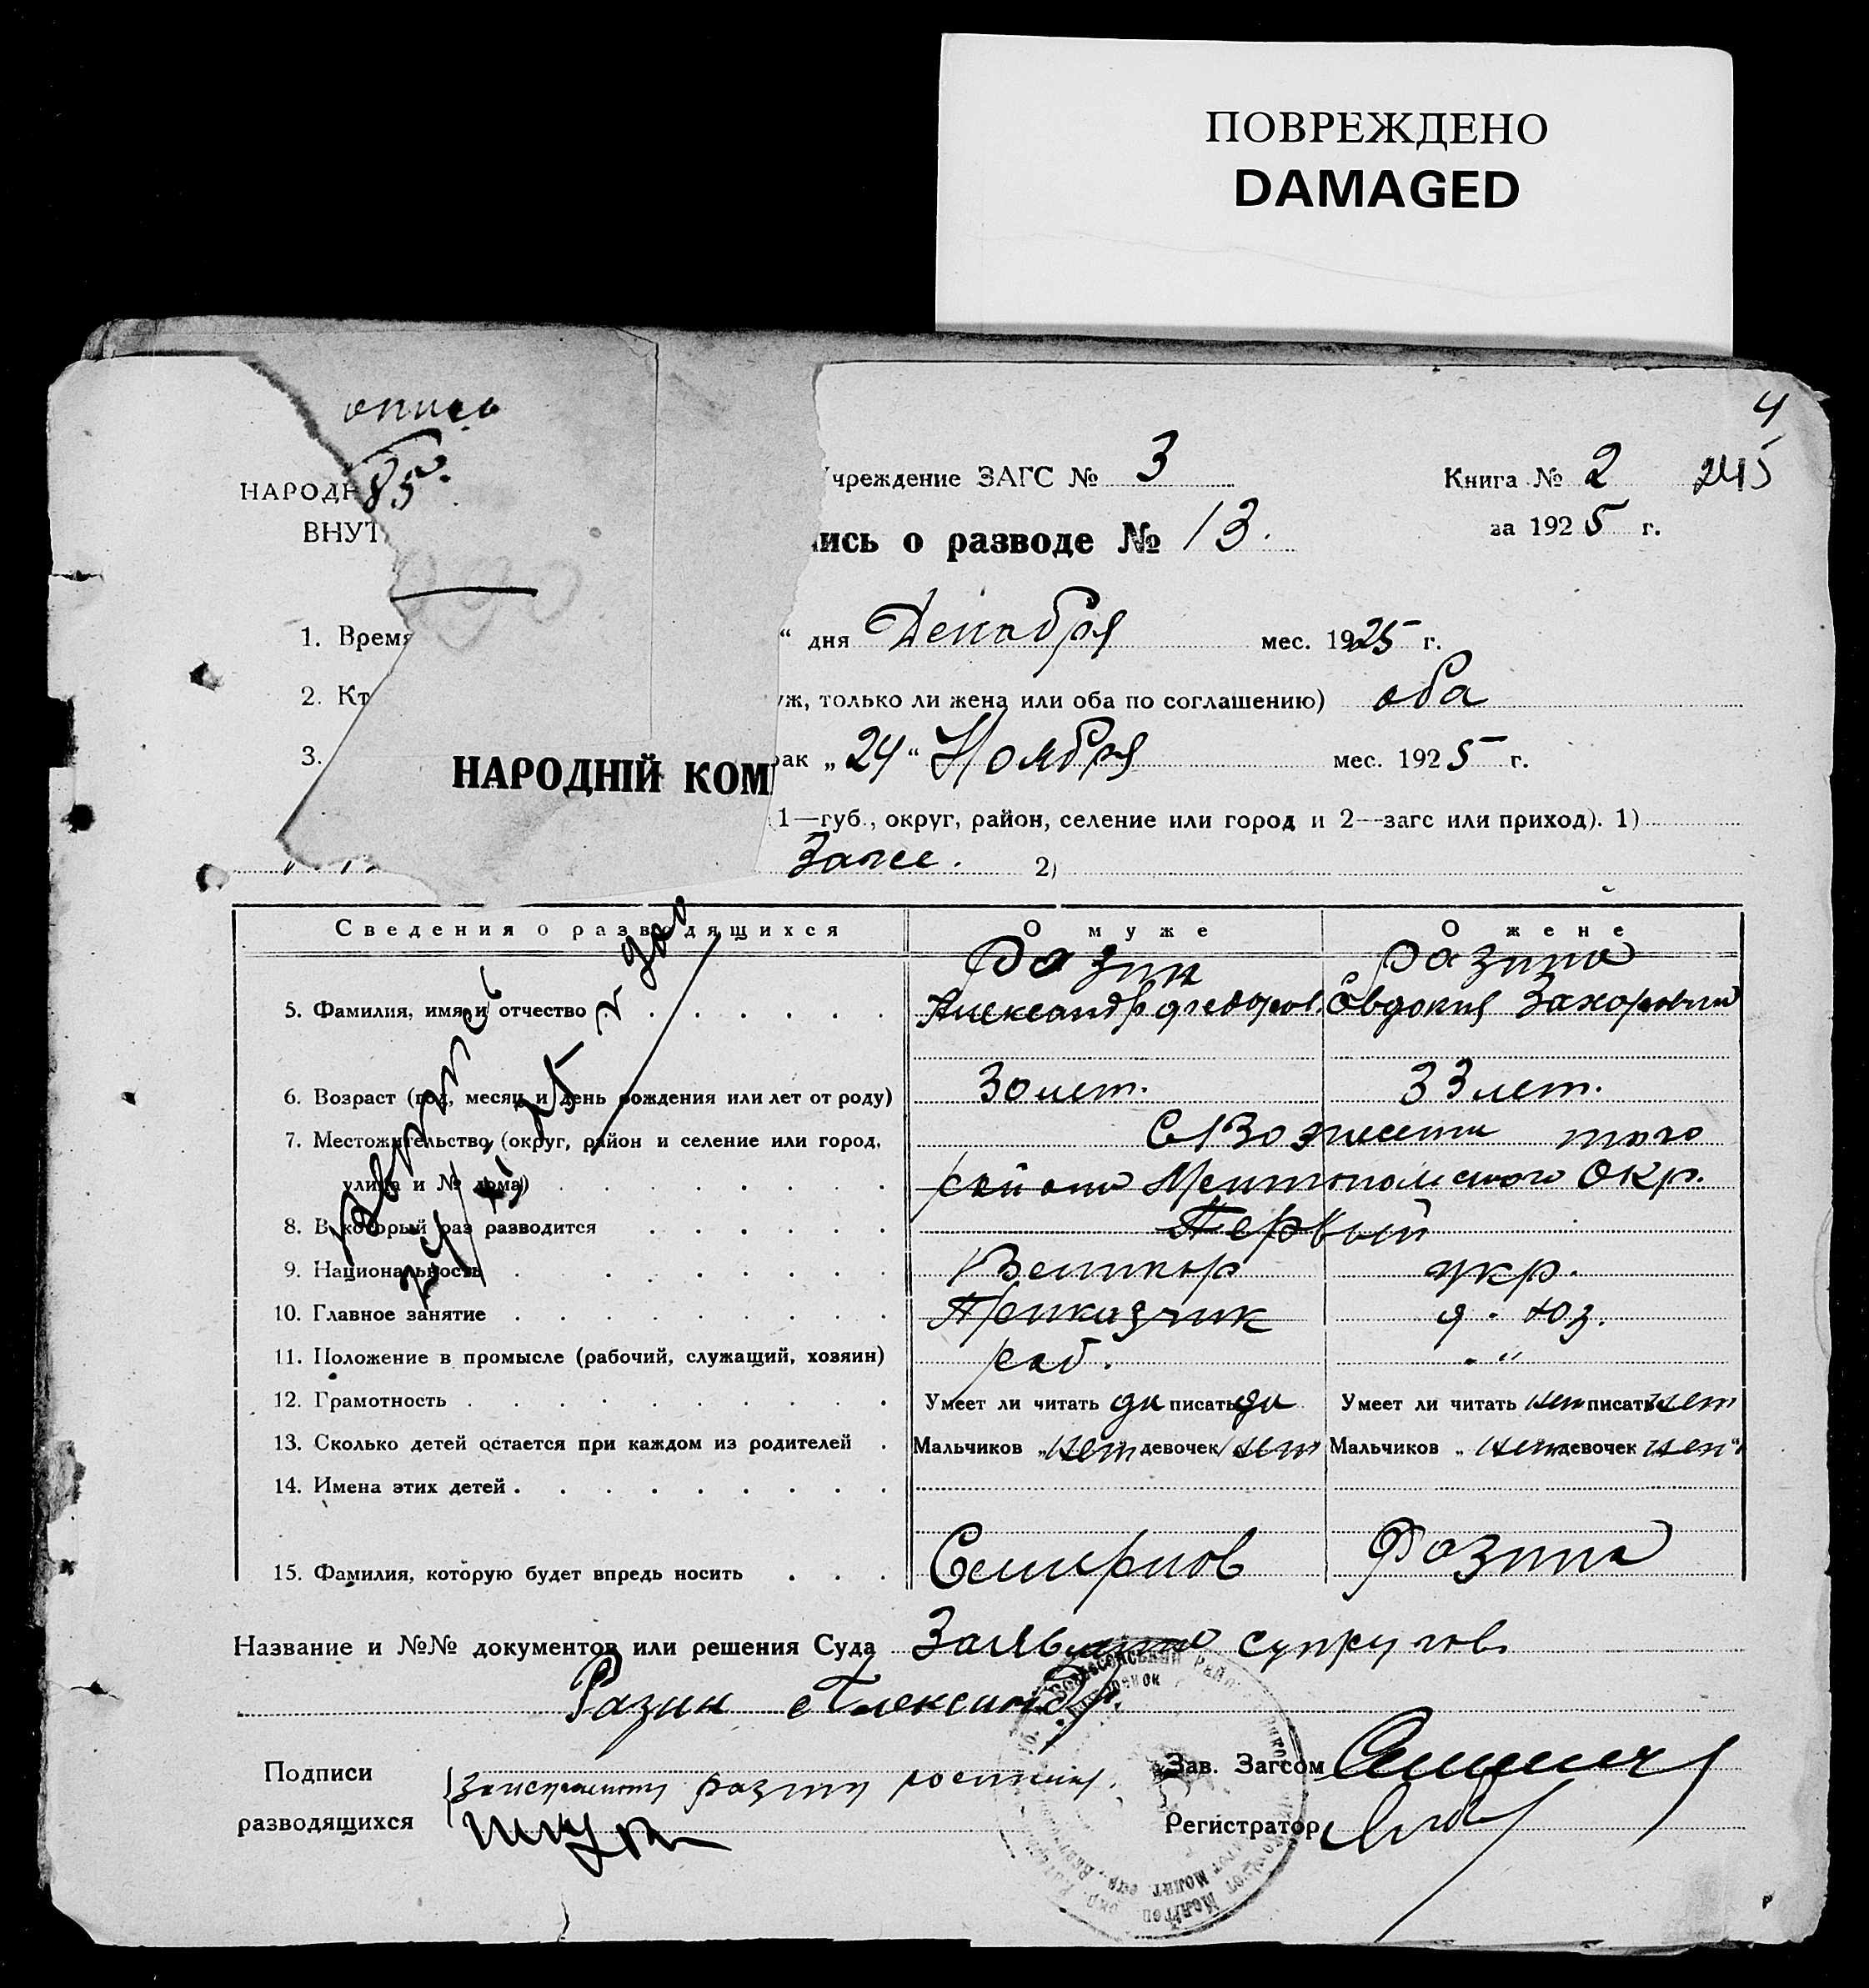 ПОВРЕЖДЕНО
DAMAGED
4
опись
85
НАРОДН
чреждение ЗАГС № 3
Книга № 2
245
ВНУТ
ись о разводе № 13.
за 1925 г.
1. Время
“ дня Декабря мес. 1925 г.
2. Кт
уж, только ли жена или оба по соглашению) оба
3.
рак „24“ Ноября мес. 1925 г.
НАРОДНІЙ КОМ
(1—губ., округ, район, селение или город и 2—загс или приход). 1)
Загсе. 2)
Сведения о разводящихся О муже О жене
Разин Разина
5. Фамилия, имя и отчество Александр Федоров. Евдокия Захоровна
6. Возраст (год, месяц и день рождения или лет от роду) 30 лет. 33 лет.
7. Местожительство (округ, район и селение или город, С Вознесенки того
улица и № дома) района Мелитопольского Окр.
8. В который раз разводится Первый
9. Национальность Великор укр.
10. Главное занятие Приказчик
11. Положение в промысле (рабочий, служащий, хозяин) раб. "
12. Грамотность Умеет ли читать да писать да Умеет ли читать нет писать нет
13. Сколько детей остается при каждом из родителей Мальчиков „нет девочек нет Мальчиков „нет девочек нет“
14. Имена этих детей
15. Фамилия, которую будет впредь носить Смирнов Разина
Название и №№ документов или решения Суда Заявление супругов
Разин Александр.
Подписи
разводящихся
Зав. Загсом
Регистратор